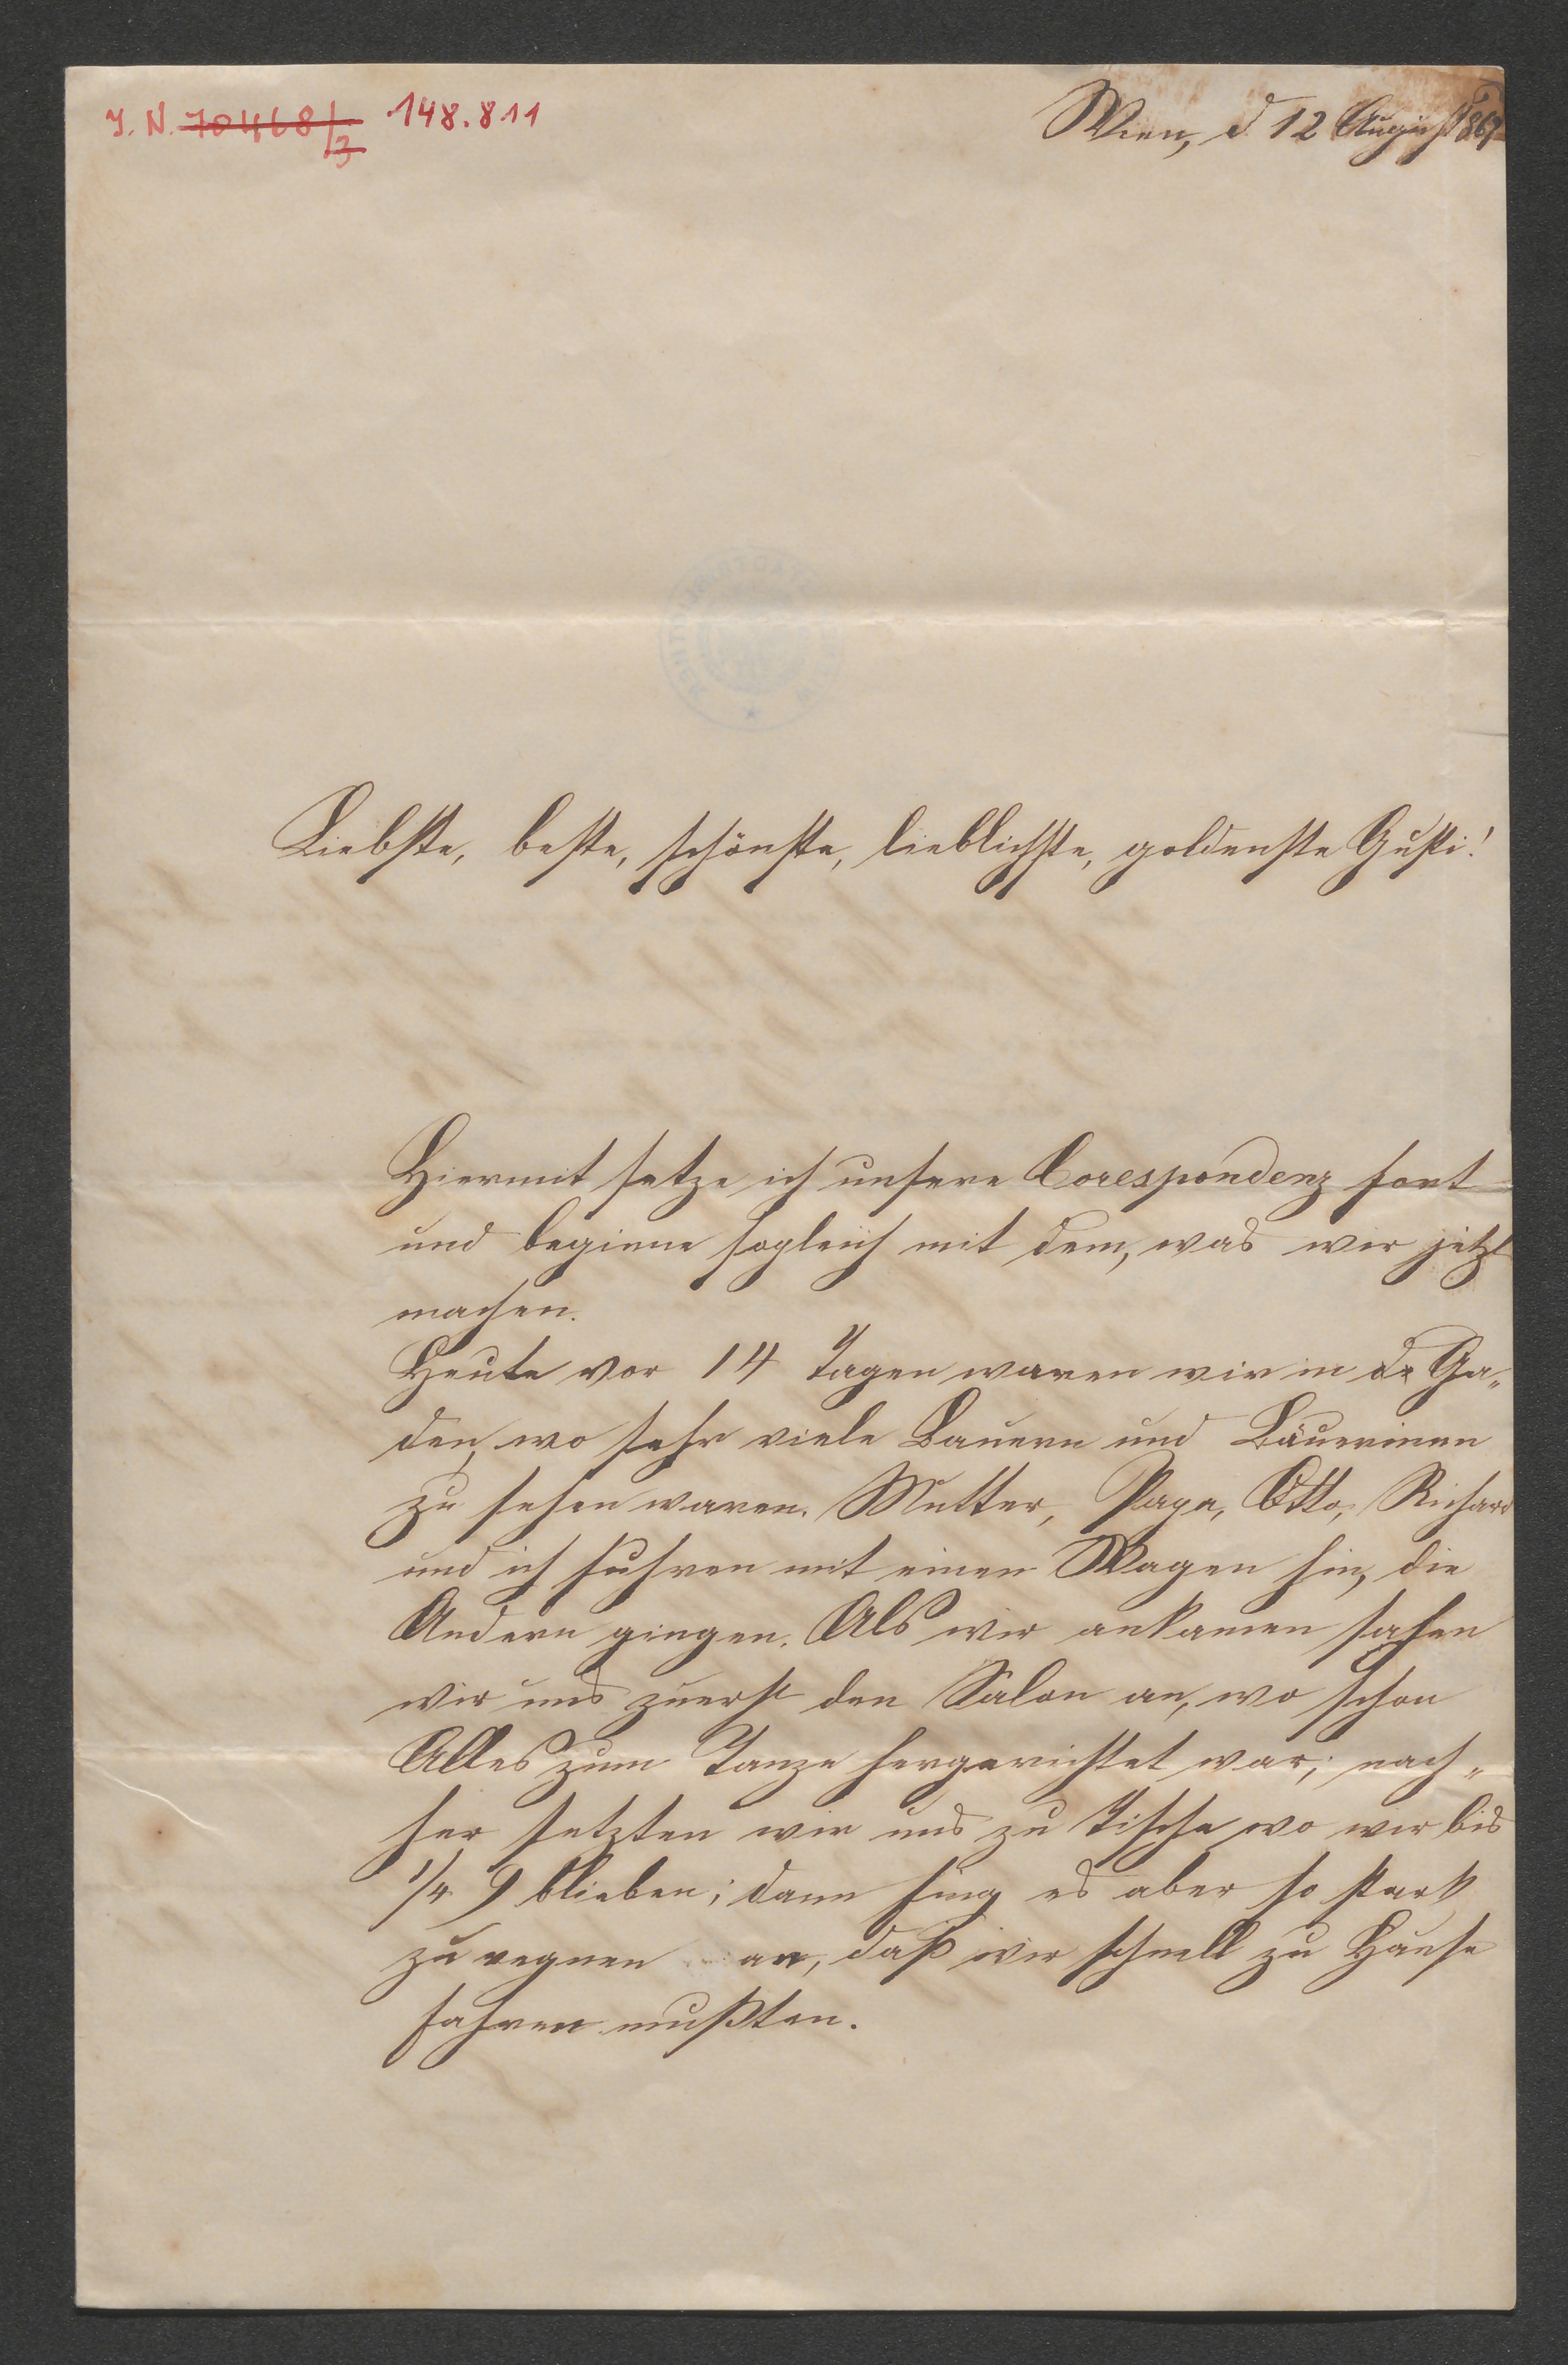 I. N. 70468/3 148.811
Wien, d. 12 August 1867
Liebste, beste, schönste, lieblichste, goldenste Gusti!
Hiermit setze ich unsere Corespondenz fort
und beginne sogleich mit dem, was wir jetzt
machen.
Heute vor 14 Tagen waren wir in de Ga„
den, wo sehr viele Bauern und Bäuerinen
zu sehen waren. Mutter, Papa, Otto, Richard
und ich fuhren mit einen Wagen hin, die
Andern gingen. Als wir ankamen sahen
wir uns zuerst den Salon an, wo schon
Alles zum Tanze hergerichtet war; nach„
her setzten wir uns zu Tische wo wir bis
1/4 9 blieben; dann fing es aber so stark
zu regnen an, daß wir schnell zu Hause
fahren mußten.